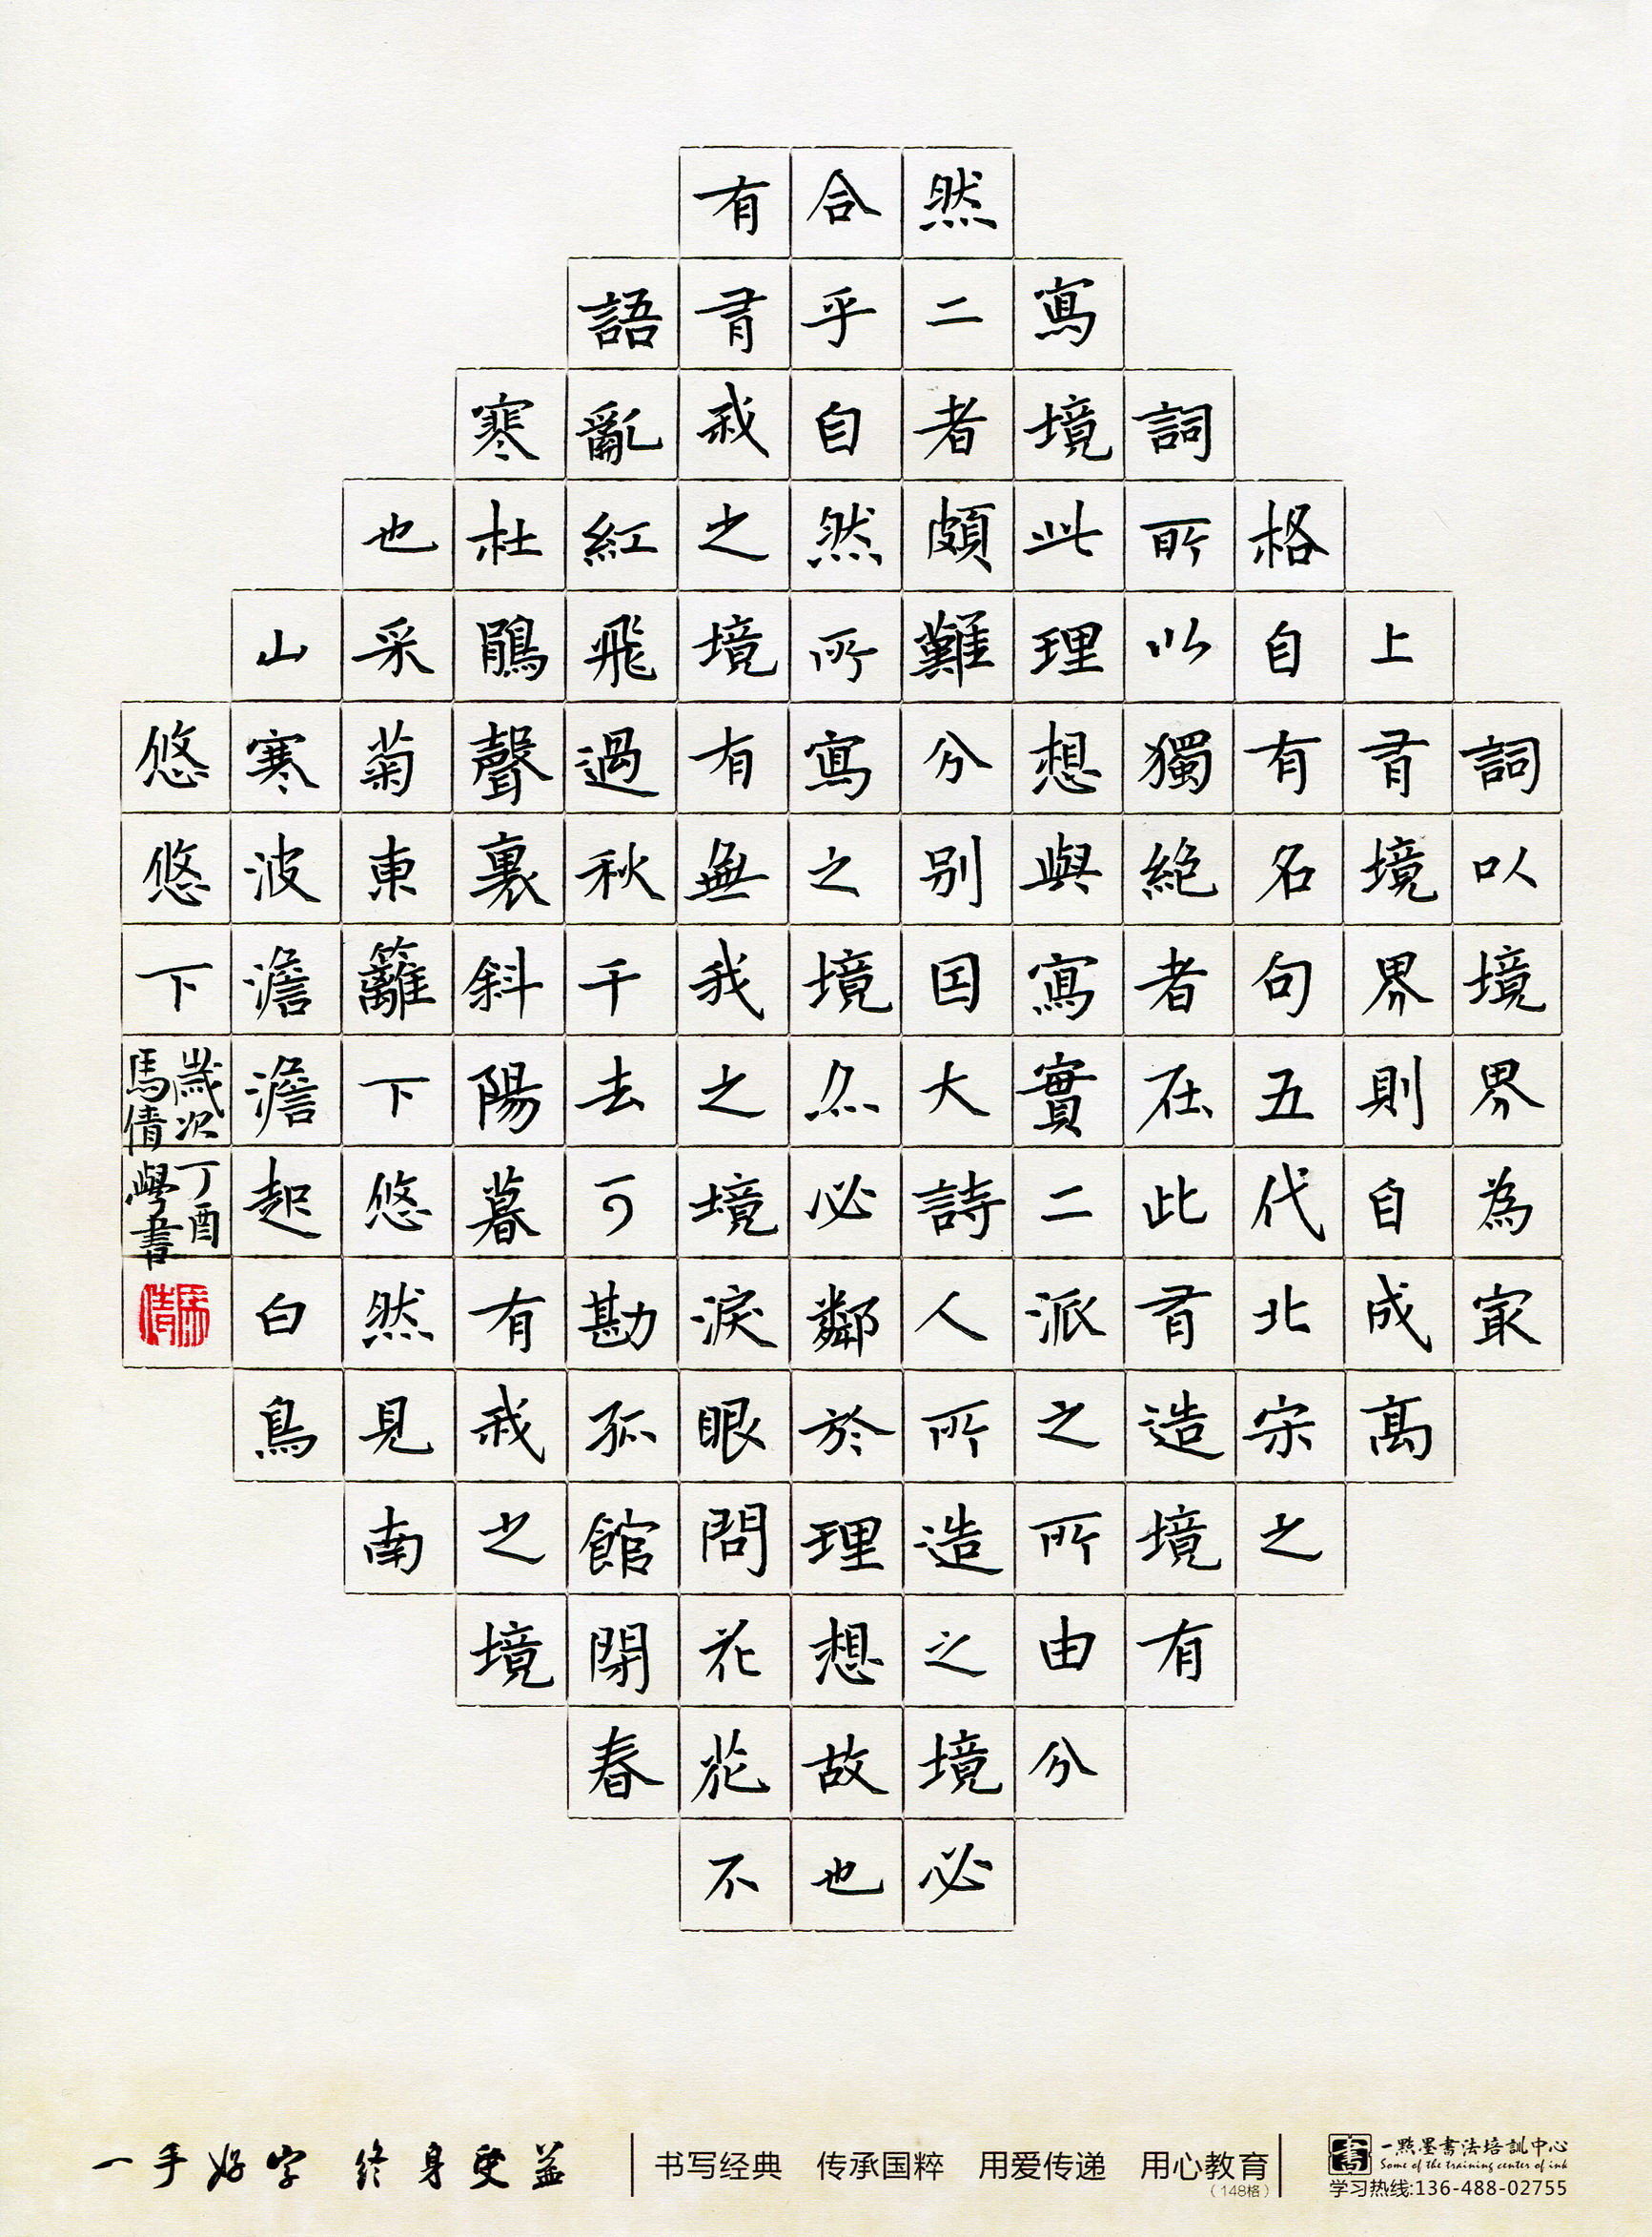 詞以境界為最
上有境界則自成高
格自有名句五代北宋之
詞所以獨絕者在此有造境有
寫境此理想與寫實二派之所由分
然二者頗難分別因大詩人所造之境必
合乎自然所寫之境亦必鄰於理想故也
有有我之境有無我之境淚眼問花花不
語亂紅飛過秋千去可勘孤館閉春
寒杜鵑聲裏斜陽暮有我之境
也采菊東籬下悠然見南
山寒波澹澹起白鳥
悠悠下
歲次丁酉
馬倩學書
馬倩
一手好字 終身受益
书写经典 传承国粹 用爱传递 用心教育
（148格）
書
一點墨書法培訓中心
Some of the training center of ink
学习热线:136-488-02755